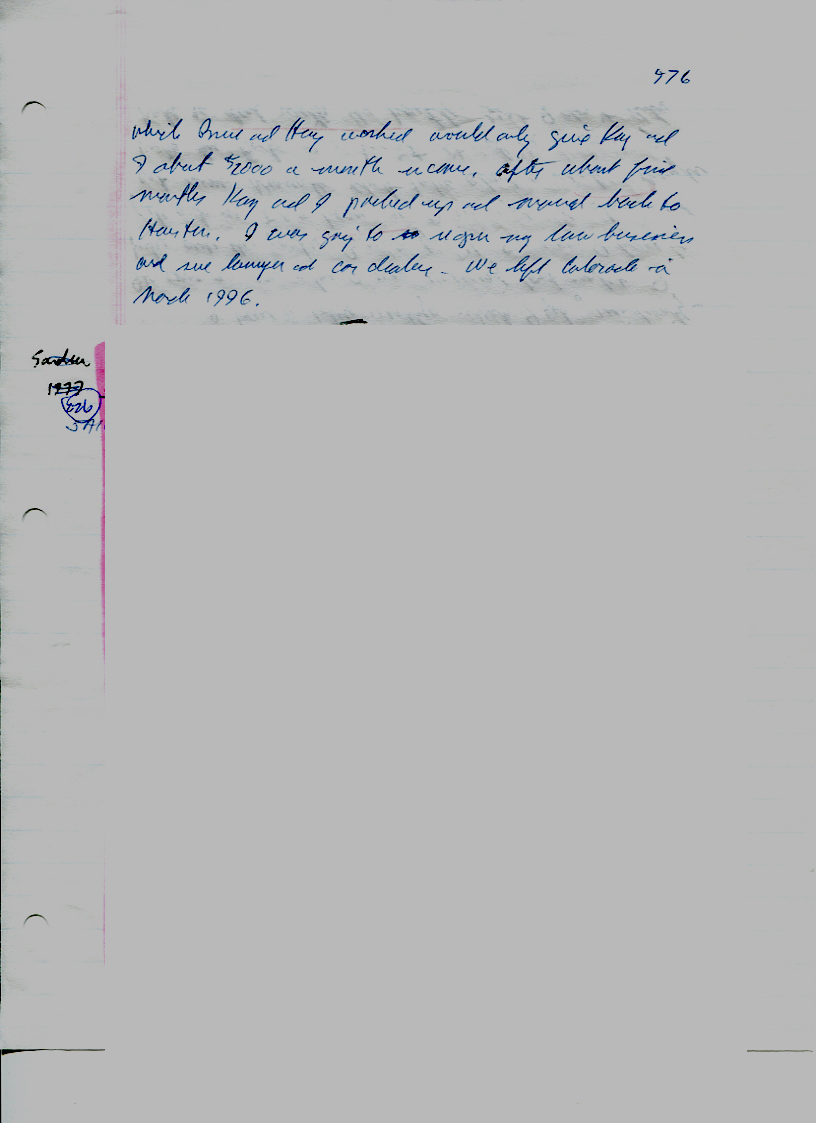 976
which and Harry worked would only give Kay and
I about $2000 a month income. After about five
months Kay and I packed up and moved back to
Houston. I was going to reopen my law business
and sue lawyers and car dealers. We left Colorado in
March 1996.
Garden
1977
526
SAI